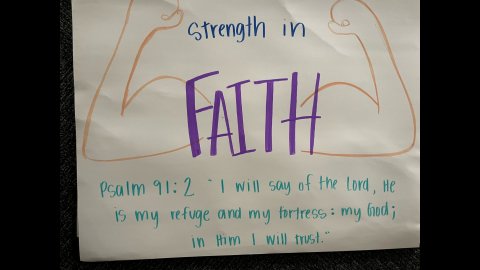 Strength in
FAITH
Psalm 91:2 "I will say of the Lord, He
is my refuge and my fortress: my God;
in Him I will trust."